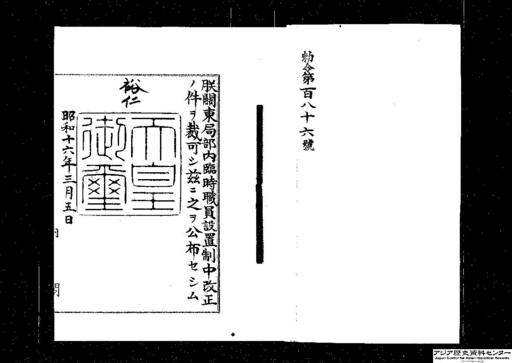 勅令第百八十六號
朕關東局部内臨時職員設置制中改正
ノ件ヲ裁可シ茲ニ之ヲ公布セシム
裕仁
天皇
御璽
昭和十六年三月五日
内 閣
アジア歴史資料センター
Japan Center for Asian Historical Records